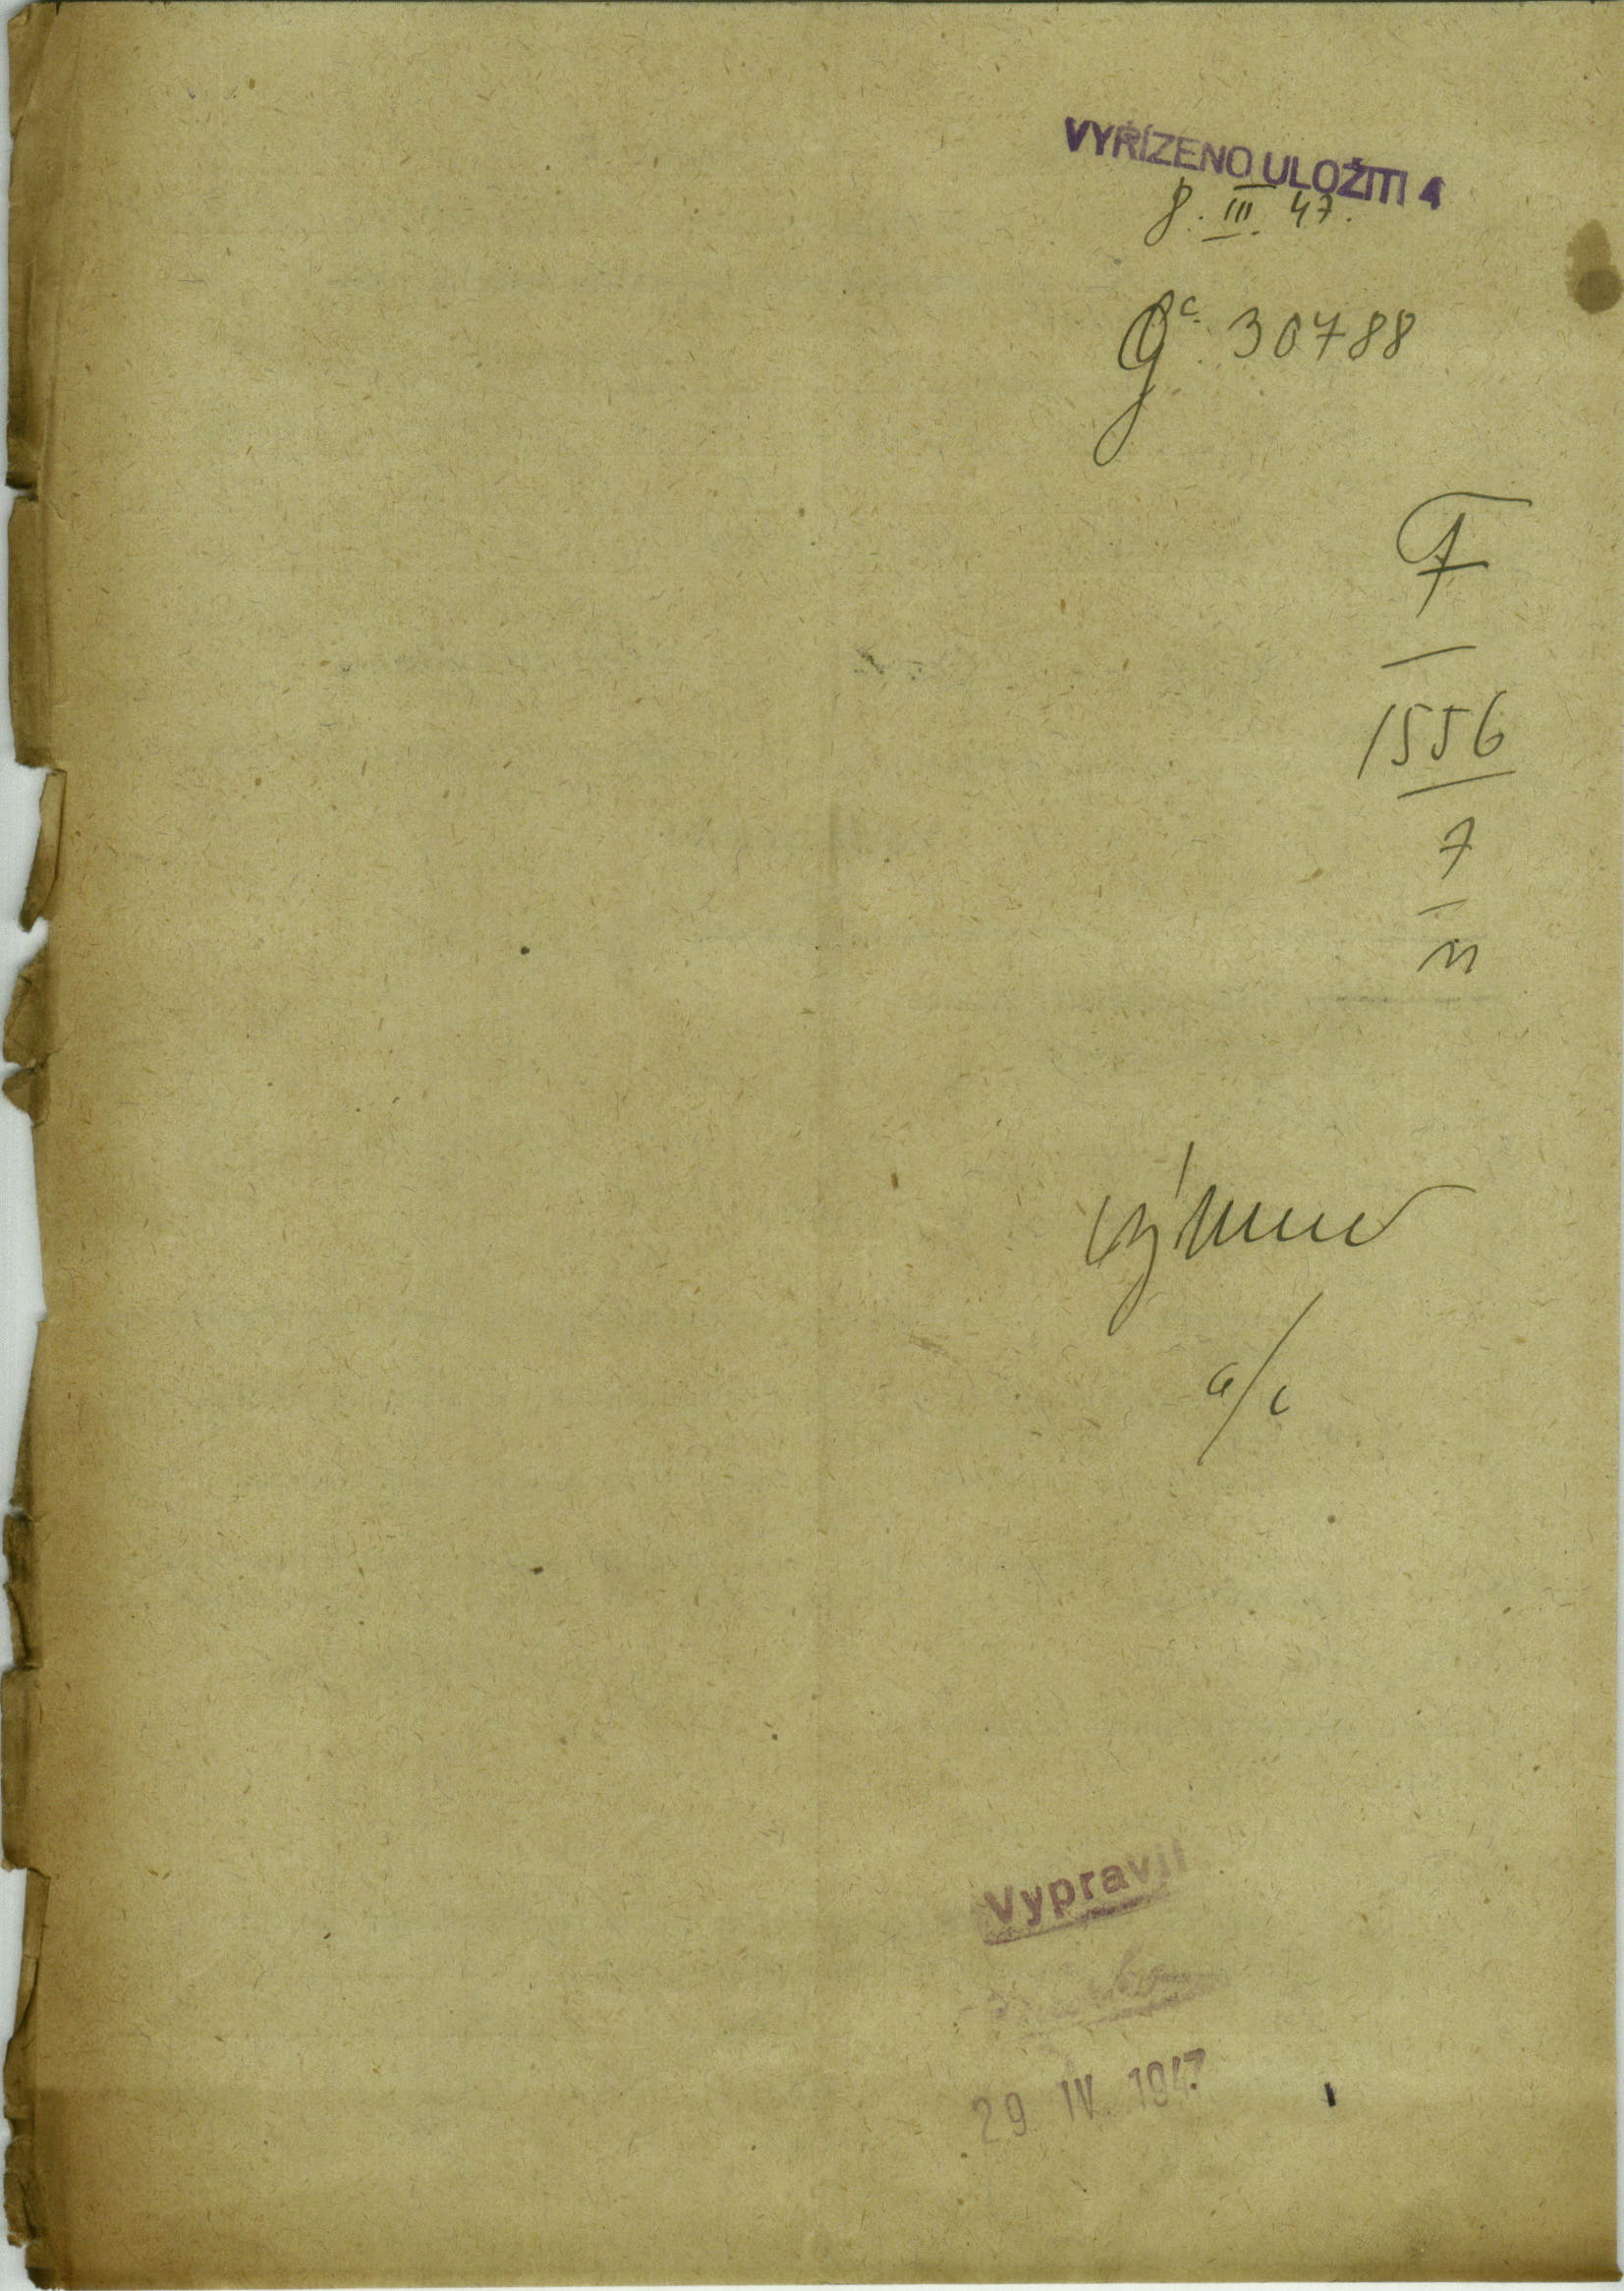 VYŘÍZENO ULOŽITI 4
8. III. 47.
Gc. 30788
F
1556
7
n
a/c
Vypravil
29 IV. 1947